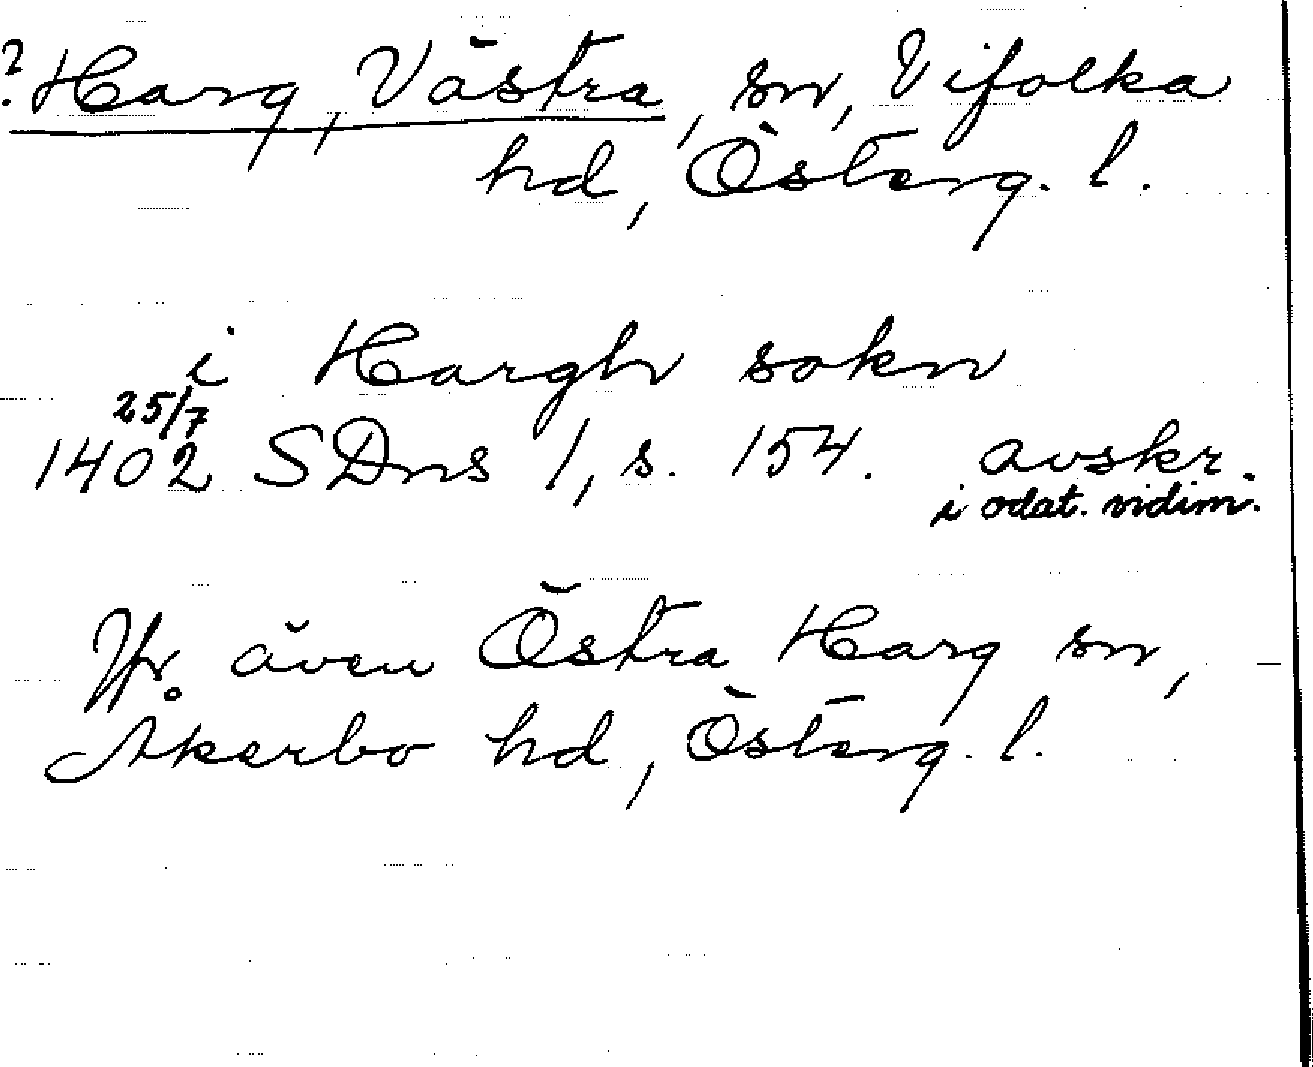 ? Harg, Västra, sn, Vifolka
hd, Österg. l.
i Hargh sokn
25/7
1402 SDns 1, s. 154. avskr.
i odat. vidim.
Jfr. även Östra Harg sn,
Åkerbo hd, Österg. l.